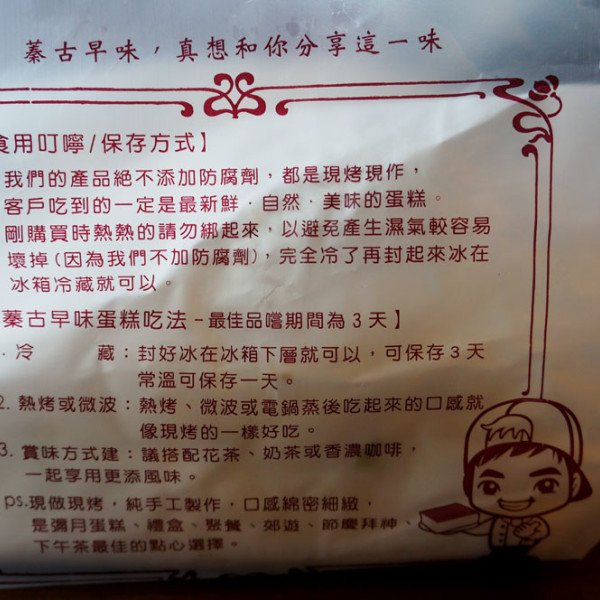 蓁古早味，真想和你分享這一味
食用叮嚀/保存方式】
我們的產品絕不添加防腐劑，都是現烤現作，
客戶吃到的一定是最新鮮．自然．美味的蛋糕。
剛購買時熱熱的請勿綁起來，以避免產生濕氣較容易
壞掉(因為我們不加防腐劑)，完全冷了再封起來冰在
冰箱冷藏就可以。
蓁古早味蛋糕吃法－最佳品嚐期間為3天】
. 冷 藏：封好冰在冰箱下層就可以，可保存3天
常溫可保存一天。
2. 熱烤或微波：熱烤、微波或電鍋蒸後吃起來的口感就
像現烤的一樣好吃。
3. 賞味方式建：議搭配花茶、奶茶或香濃咖啡，
一起享用更添風味。
ps.現做現烤，純手工製作，口感綿密細緻，
是彌月蛋糕、禮盒、聚餐、郊遊、節慶拜神、
下午茶最佳的點心選擇。